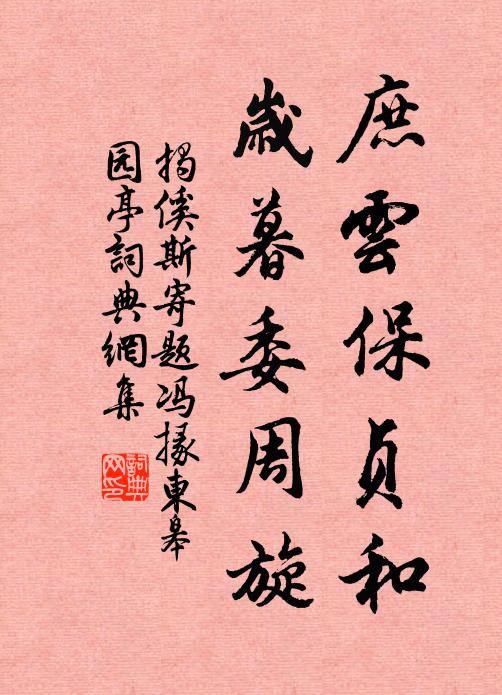 庶雲保貞和
歲暮委周旋
揭傒斯寄題冯掾東皋
园亭詞典網集
詞典网印